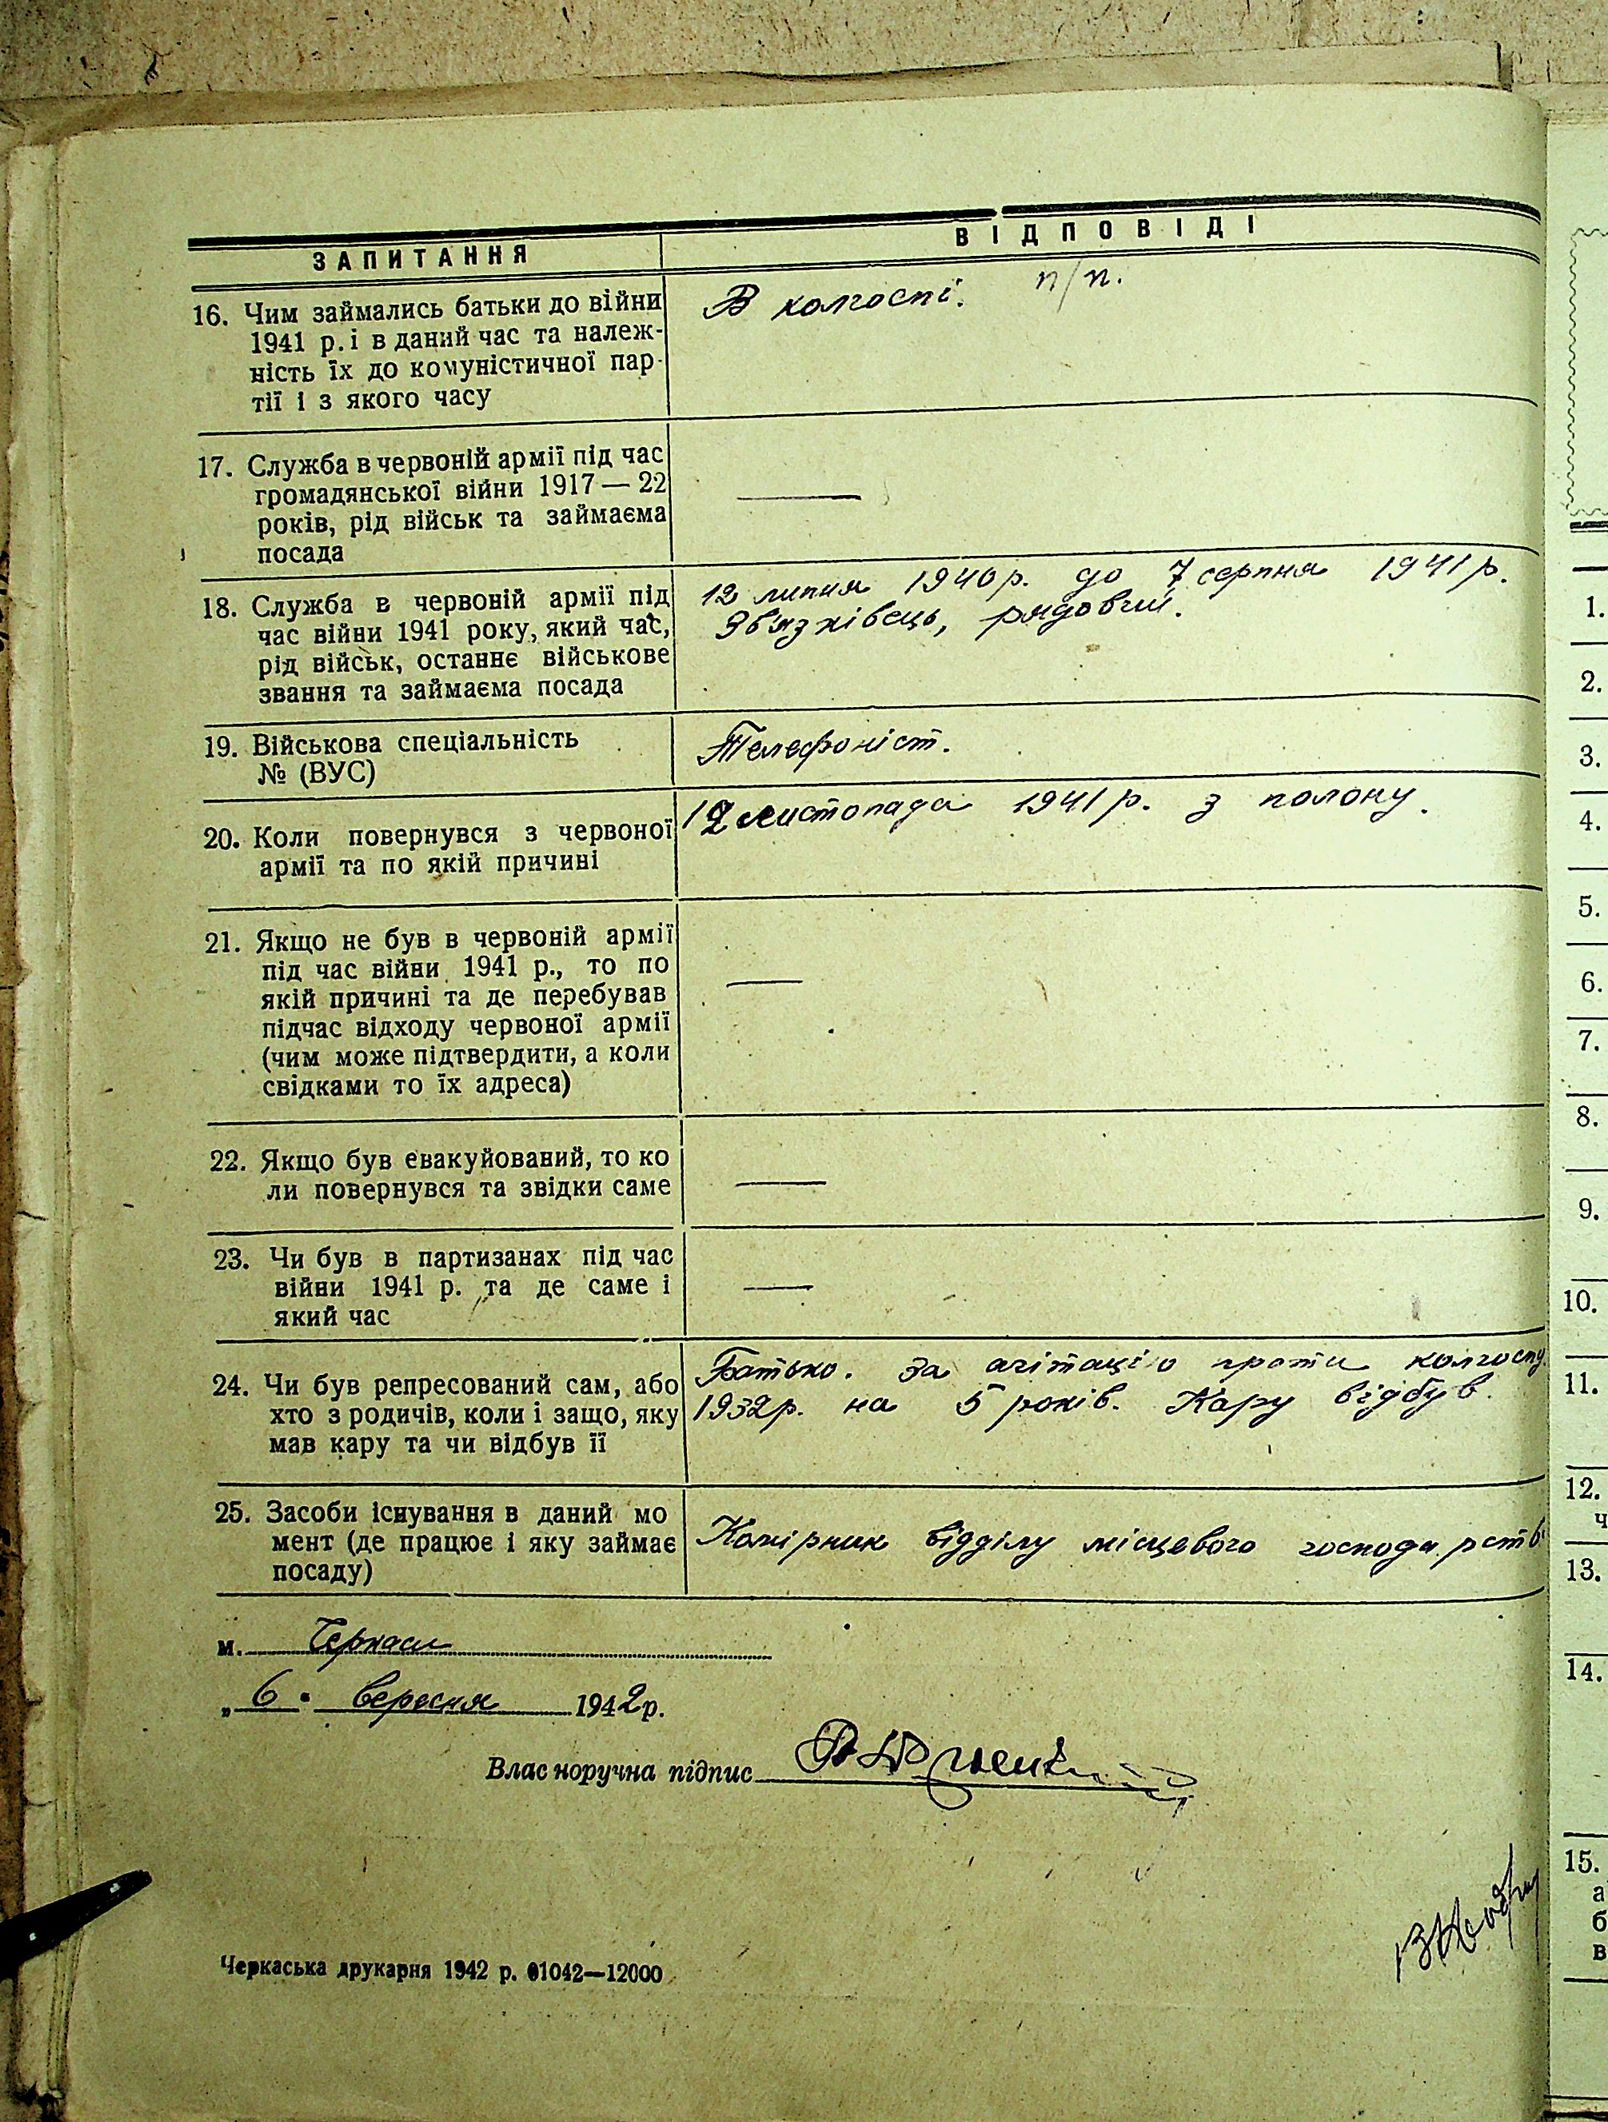 ЗАПИТАННЯ
ВІДПОВІДІ
16. Чим займались батьки до війни
1941 р. і в даний час та належ-
ність їх до комуністичної пар-
тії і з якого часу
В колгоспі. п/п.
17. Служба в червоній армії під час
громадянської війни 1917 — 22
років, рід військ та займаєма
посада
—
18. Служба в червоній армії під
час війни 1941 року, який час,
рід військ, останнє військове
звання та займаєма посада
12 липня 1940 р. до 7 серпня 1941 р.
Зв'язківець, рядовий.
19. Військова спеціальність
№ (ВУС)
Телефоніст.
20. Коли повернувся з червоної
армії та по якій причині
12 листопада 1941 р. з полону.
21. Якщо не був в червоній армії
під час війни 1941 р., то по
якій причині та де перебував
підчас відходу червоної армії
(чим може підтвердити, а коли
свідками то їх адреса)
—
22. Якщо був евакуйований, то ко
ли повернувся та звідки саме
—
23. Чи був в партизанах під час
війни 1941 р. та де саме і
який час
—
24. Чи був репресований сам, або
хто з родичів, коли і защо, яку
мав кару та чи відбув її
Батько. За агітацію проти колгоспу
1932 р. на 5 років. Кару відбув.
25. Засоби існування в даний мо
мент (де працює і яку займає
посаду)
Комірник відділу місцевого господарств
м. Черкаси
„ 6 " вересня 1942 р.
Власноручна підпис
Черкаська друкарня 1942 р. 01042—12000
1.
2.
3.
4.
5.
6.
7.
8.
9.
10.
11.
12.
ч
13.
14.
15.
а
б
в